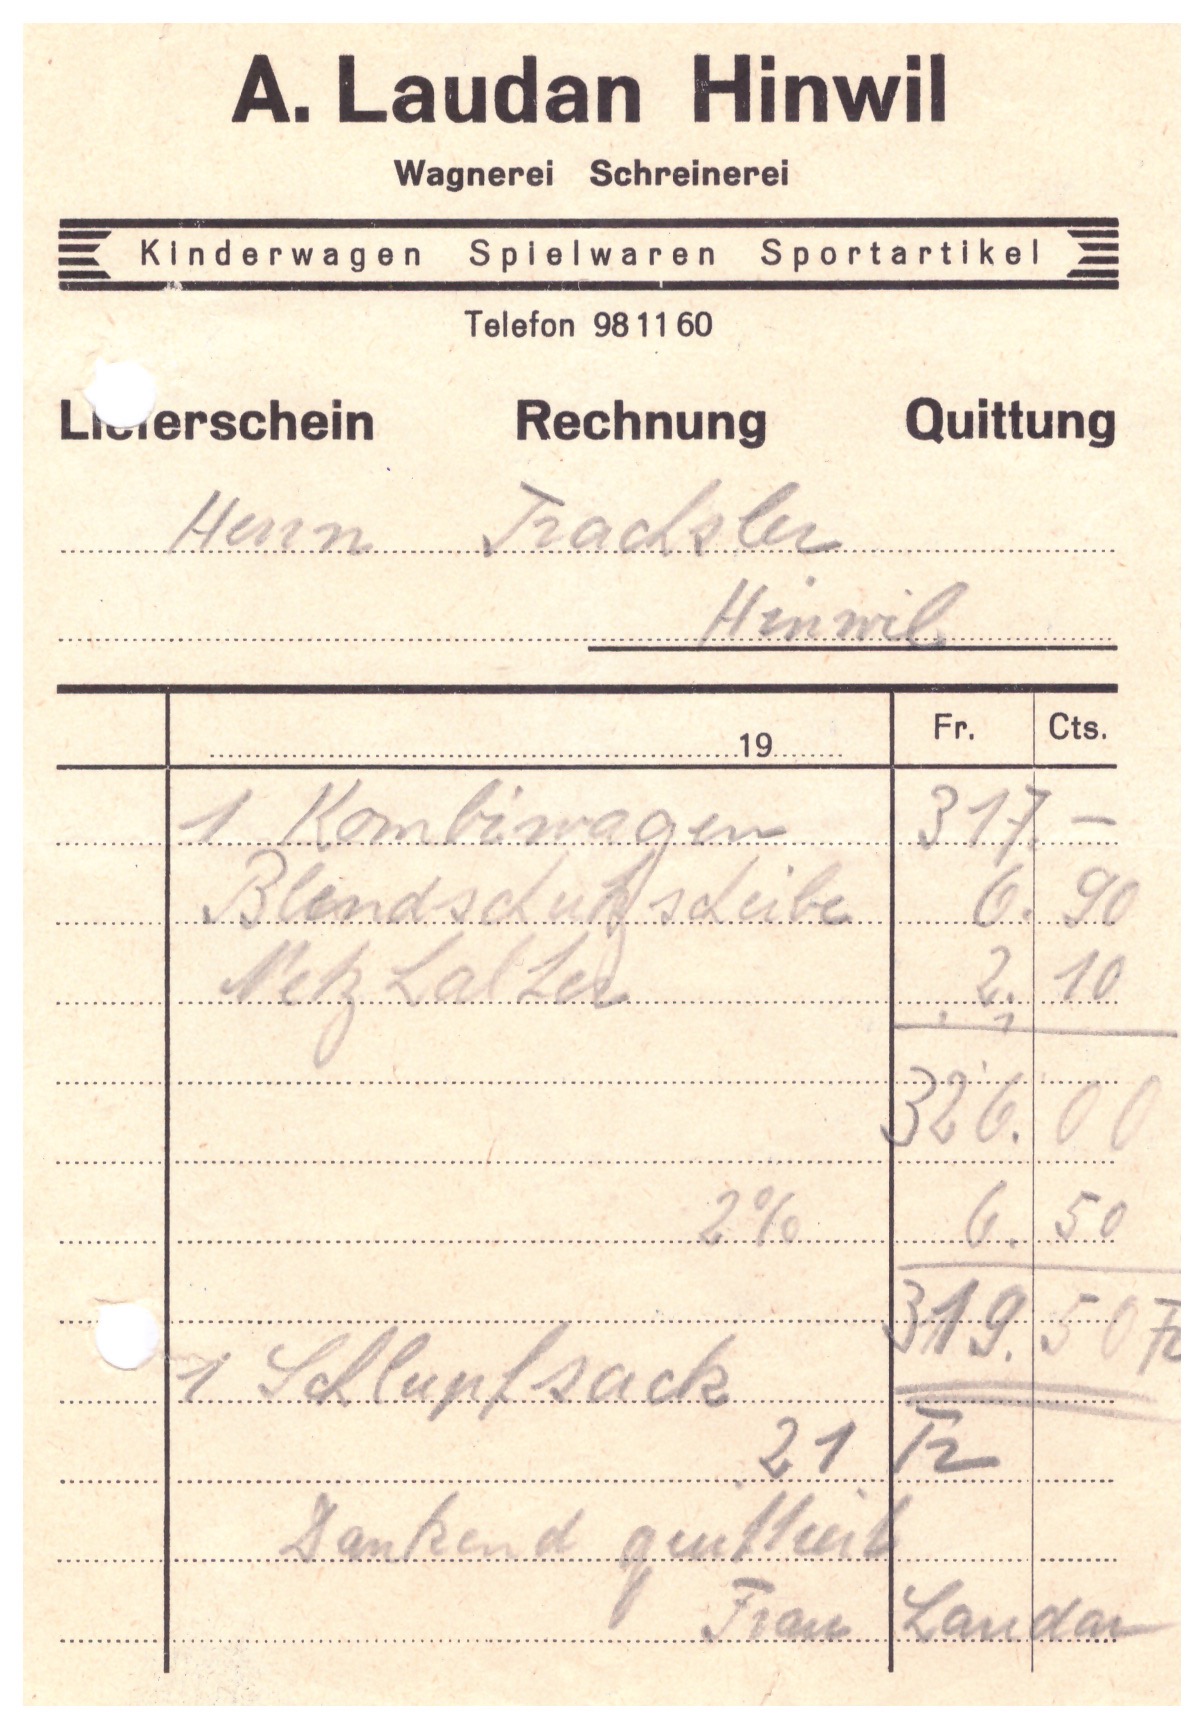 A. Laudan Hinwil
Wagnerei Schreinerei
Kinderwagen Spielwaren Sportartikel
Telefon 98 11 60
Lieferschein Rechnung Quittung
Herrn Trachsler
Hinwil
19 Fr. Cts.
1 Kombiwagen 317. —
Blendschutzscheibe 6. 90
Netzhalter 2. 10
326. 00
2% 6. 50
319. 50 Fr
1 Schlupfsack
21 Fr
Dankend quittiert
Frau Laudan